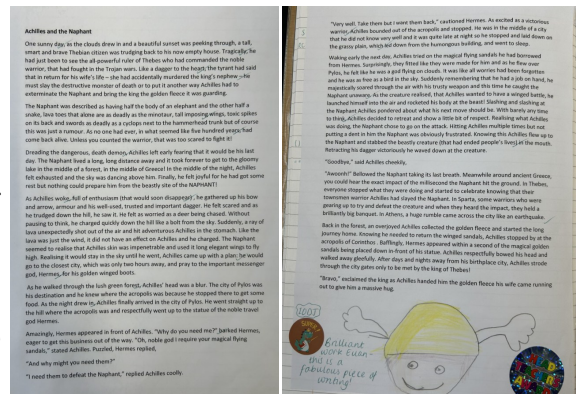 Achilles and the Naphant
One sunny day, as the clouds drew in and a beautiful sunset was peeking through, a tall,
smart and brave Thebian citizen was trudging back to his now empty house. Tragically, he
had just been to see the all-powerful ruler of Thebes who had commanded the noble
warrior, that had fought in the Trojan wars. Like a dagger to the heart; the tyrant had said
that in return for his wife's life – she had accidentally murdered the king's nephew – he
must slay the destructive monster of death or to put it another way Achilles had to
exterminate the Naphant and bring the king the golden fleece it was guarding.
The Naphant was described as having half the body of an elephant and the other half a
snake, lava toes that alone are as deadly as the minotaur, tall imposing wings, toxic spikes
on its back and swords as deadly as a cyclops next to the hammerhead trunk but of course
this was just a rumour. As no one had ever, in what seemed like five hundred years, had
come back alive. Unless you counted the warrior, that was too scared to fight it!
Dreading the dangerous, death demon, Achilles left early fearing that it would be his last
day. The Naphant lived a long, long distance away and it took forever to get to the gloomy
lake in the middle of a forest, in the middle of Greece! In the middle of the night, Achilles
felt exhausted and the sky was dancing above him. Finally, he felt joyful for he had got some
rest but nothing could prepare him from the beastly site of the NAPHANT!
As Achilles woke, full of enthusiasm (that would soon disappear), he gathered up his bow
and arrow, armour and his well-used, trusted and important dagger. He felt scared and as
he trudged down the hill, he saw it. He felt as worried as a deer being chased. Without
pausing to think, he charged quickly down the hill like a bolt from the sky. Suddenly, a ray of
lava unexpectedly shot out of the air and hit adventurous Achilles in the stomach. Like the
lava was just the wind, it did not have an effect on Achilles and he charged. The Naphant
seemed to realise that Achilles skin was impenetrable and used it long elegant wings to fly
high. Realising it would stay in the sky until he went, Achilles came up with a plan: he would
go to the closest city, which was only two hours away, and pray to the important messenger
god, Hermes, for his golden winged boots.
As he walked through the lush green forest, Achilles' head was a blur. The city of Pylos was
his destination and he knew where the acropolis was because he stopped there to get some
food. As the night drew in, Achilles finally arrived in the city of Pylos. He went straight up to
the hill where the acropolis was and respectfully went up to the statue of the noble travel
god Hermes.
Amazingly, Hermes appeared in front of Achilles. "Why do you need me?" barked Hermes,
eager to get this business out of the way. "Oh, noble god I require your magical flying
sandals," stated Achilles. Puzzled, Hermes replied,
"And why might you need them?"
"I need them to defeat the Naphant," replied Achilles coolly.
"Very well. Take them but I went them back," cautioned Hermes. As excited as a victorious
warrior, Achilles bounded out of the acropolis and stopped. He was in the middle of a city
that he did not know very well and it was quite late at night so he stopped and laid down on
the grassy plain, which led down from the humongous building, and went to sleep.
Waking early the next day, Achilles tried on the magical flying sandals he had borrowed
from Hermes. Surprisingly, they fitted like they were made for him and as he flew over
Pylos, he felt like he was a god flying on clouds. It was like all worries had been forgotten
and he was as free as a bird in the sky. Suddenly remembering that he had a job on hand, he
majestically soared through the air with his trusty weapon and this time he caught the
Naphant unaware. As the creature realised, that Achilles wanted to have a winged battle, he
launched himself into the air and rocketed his body at the beast! Slashing and slashing at
the Naphant Achilles pondered about what his next move should be. With barely any time
to thing, Achilles decided to retreat and show a little bit of respect. Realising what Achilles
was doing, the Naphant chose to go on the attack. Hitting Achilles multiple times but not
putting a dent in him the Naphant was obviously frustrated. Knowing this Achilles flew up to
the Naphant and stabbed the beasty creature (that had ended people's lives) in the mouth.
Retracting his dagger victoriously he waved down at the creature.
"Goodbye," said Achilles cheekily.
"Awoonh!" Bellowed the Naphant taking its last breath. Meanwhile around ancient Greece,
you could hear the exact impact of the millisecond the Naphant hit the ground. In Thebes,
everyone stopped what they were doing and started to celebrate knowing that their
townsmen warrior Achilles had slayed the Naphant. In Sparta, some warriors who were
gearing up to try and defeat the creature and when they heard the impact, they held a
brilliantly big banquet. In Athens, a huge rumble came across the city like an earthquake.
Back in the forest, an overjoyed Achilles collected the golden fleece and started the long
journey home. Knowing he needed to return the winged sandals, Achilles stopped by at the
acropolis of Corinthos. Bafflingly, Hermes appeared within a second of the magical golden
sandals being placed down in-front of his statue. Achilles respectfully bowed his head and
walked away gleefully. After days and nights away from his birthplace city, Achilles strode
through the city gates only to be met by the king of Thebes!
"Bravo," exclaimed the king as Achilles handed him the golden fleece his wife came running
out to give him a massive hug.
Brilliant
work Euan –
this is a
fabulous piece of
writing!